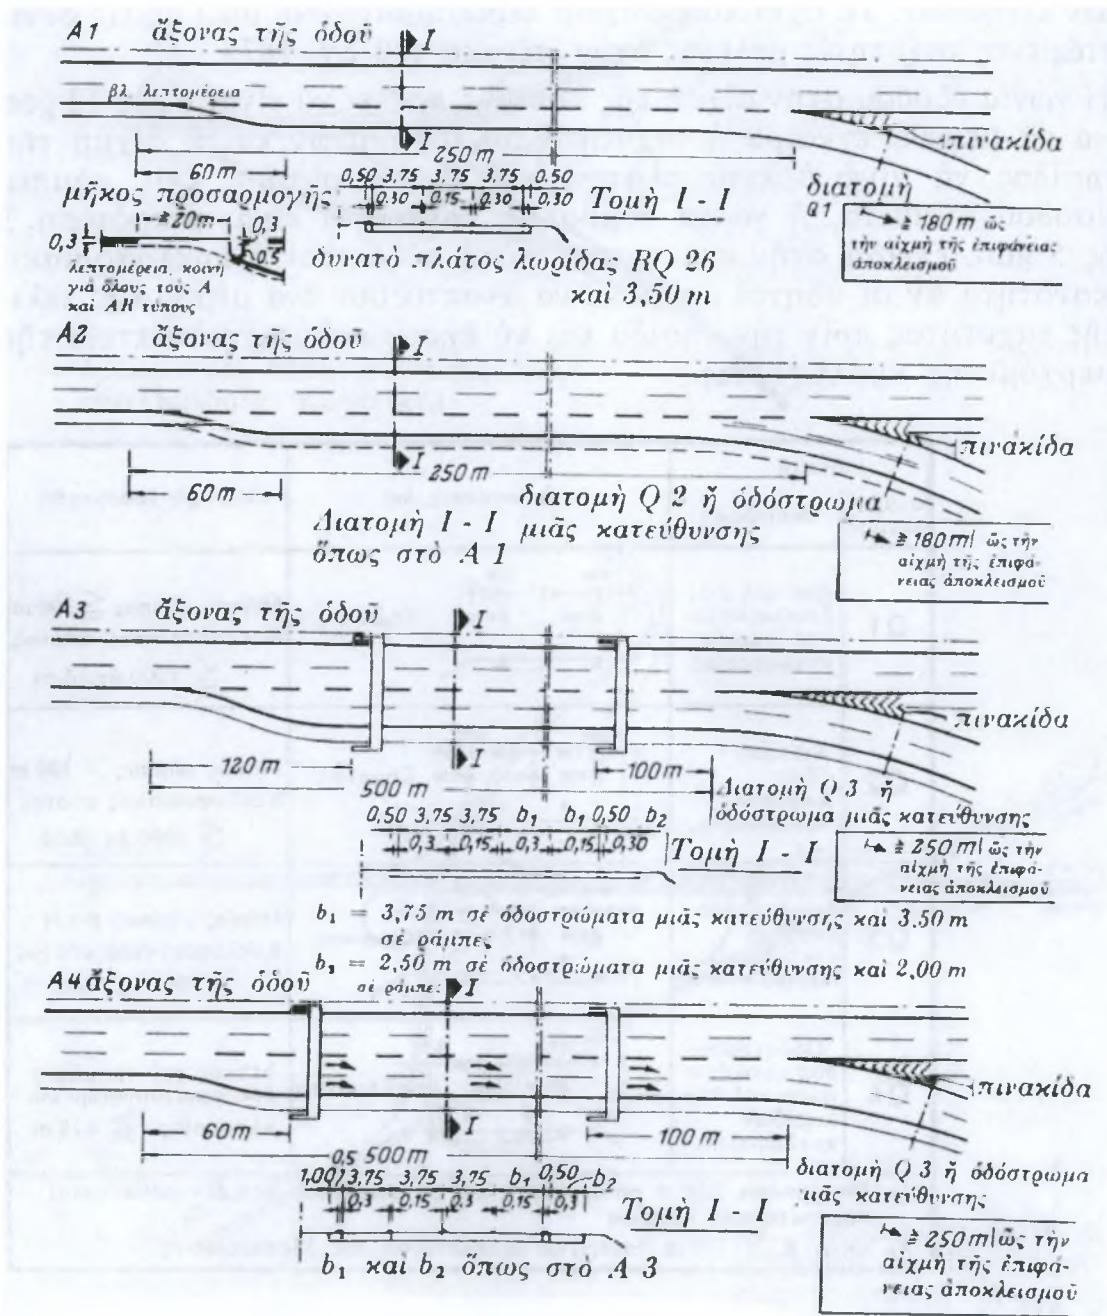 A1 ἄξονας τῆς ὁδοῦ
I
βλ. λεπτομέρεια
I
60 m
250 m
πινακίδα
μῆκος προσαρμογῆς
0,50 3,75 3,75 3,75 0.50
0,30 0,15 0,30 0,30
Τομὴ I - I
διατομὴ
Q1
≧ 20m
0,3
0,3
0,5
λεπτομέρεια κοινὴ
γιὰ ὅλους τοὺς A
καὶ AR τύπους
δυνατὸ πλάτος λωρίδας RQ 26
καὶ 3,50 m
≧ 180 m ὡς
τὴν αἰχμὴ τῆς ἐπιφάνειας
ἀποκλεισμοῦ
A2 ἄξονας τῆς ὁδοῦ
I
I
60 m
250 m
πινακίδα
διατομὴ Q 2 ἤ ὁδόστρωμα
μιᾶς κατεύθυνσης
Διατομὴ I - I
ὅπως στὸ A 1
≧ 180 m ὡς τὴν
αἰχμὴ τῆς ἐπιφά-
νειας ἀποκλεισμοῦ
A3 ἄξονας τῆς ὁδοῦ
I
I
πινακίδα
120 m
500 m
100 m
Διατομὴ Q 3 ἤ
ὁδόστρωμα μιᾶς κατεύθυνσης
0,50 3,75 3,75 b₁ b₁ 0,50 b₂
0,3 0,15 0,3 0,15 0,30
Τομὴ I - I
≧ 250 m ὡς τὴν
αἰχμὴ τῆς ἐπιφά-
νειας ἀποκλεισμοῦ
b₁ = 3,75 m σὲ ὁδοστρώματα μιᾶς κατεύθυνσης καὶ 3.50 m
σὲ ράμπες
b₂ = 2,50 m σὲ ὁδοστρώματα μιᾶς κατεύθυνσης καὶ 2,00 m
σὲ ράμπες
A4 ἄξονας τῆς ὁδοῦ
I
I
πινακίδα
60 m
500 m
100 m
διατομὴ Q 3 ἤ ὁδόστρωμα
μιᾶς κατεύθυνσης
0,5
1,00 3,75 3,75 3,75 b₁ 0,50 b₂
0,3 0,15 0,3 0,15 0,3
Τομὴ I - I
b₁ καὶ b₂ ὅπως στὸ A 3
≧ 250 m ὡς τὴν
αἰχμὴ τῆς ἐπιφά-
νειας ἀποκλεισμοῦ